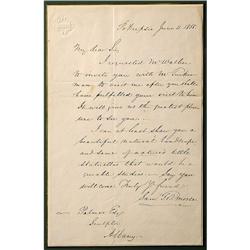 June 11. 1858.
My dear Sir,
I requested Mr Waller
to invite you with Mr
man to visit me after you
have fulfilled your visit to him
It will give us the greatest pleasure
to see you.
I can at least show you a
beautiful natural landscape
and some of
that would be a
studio. Say you
will come Truly Yr friend
Sam
Palmer Esq
Sculptor
Albany